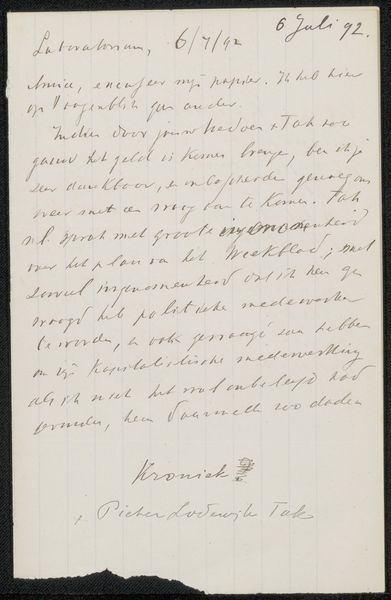 6 Juli 92.
Laboratorium, 6/7/92
Amice, excuseer mijn papier. Ik heb hier
op 't oogenblik geen ander.
Indien door jouw + Tak zoo
gauw het geld is komen, ben ik je
zeer dankbaar, en
weer met een vraag aan te komen. Tak
nl. sprak met groote ingenomenheid
over het plan van het Weekblad; met
zooveel ingenomenheid dat ik hem ge-
vraagd heb politische medewerker
te worden, en ook gevraagd zou hebben
om zijn kapitalistische medewerking
als ik niet het wat onbeleefd had
gevonden, hem daarmede zoo dadelijk
Kroniek
+ Pieter Lodewijk Tak